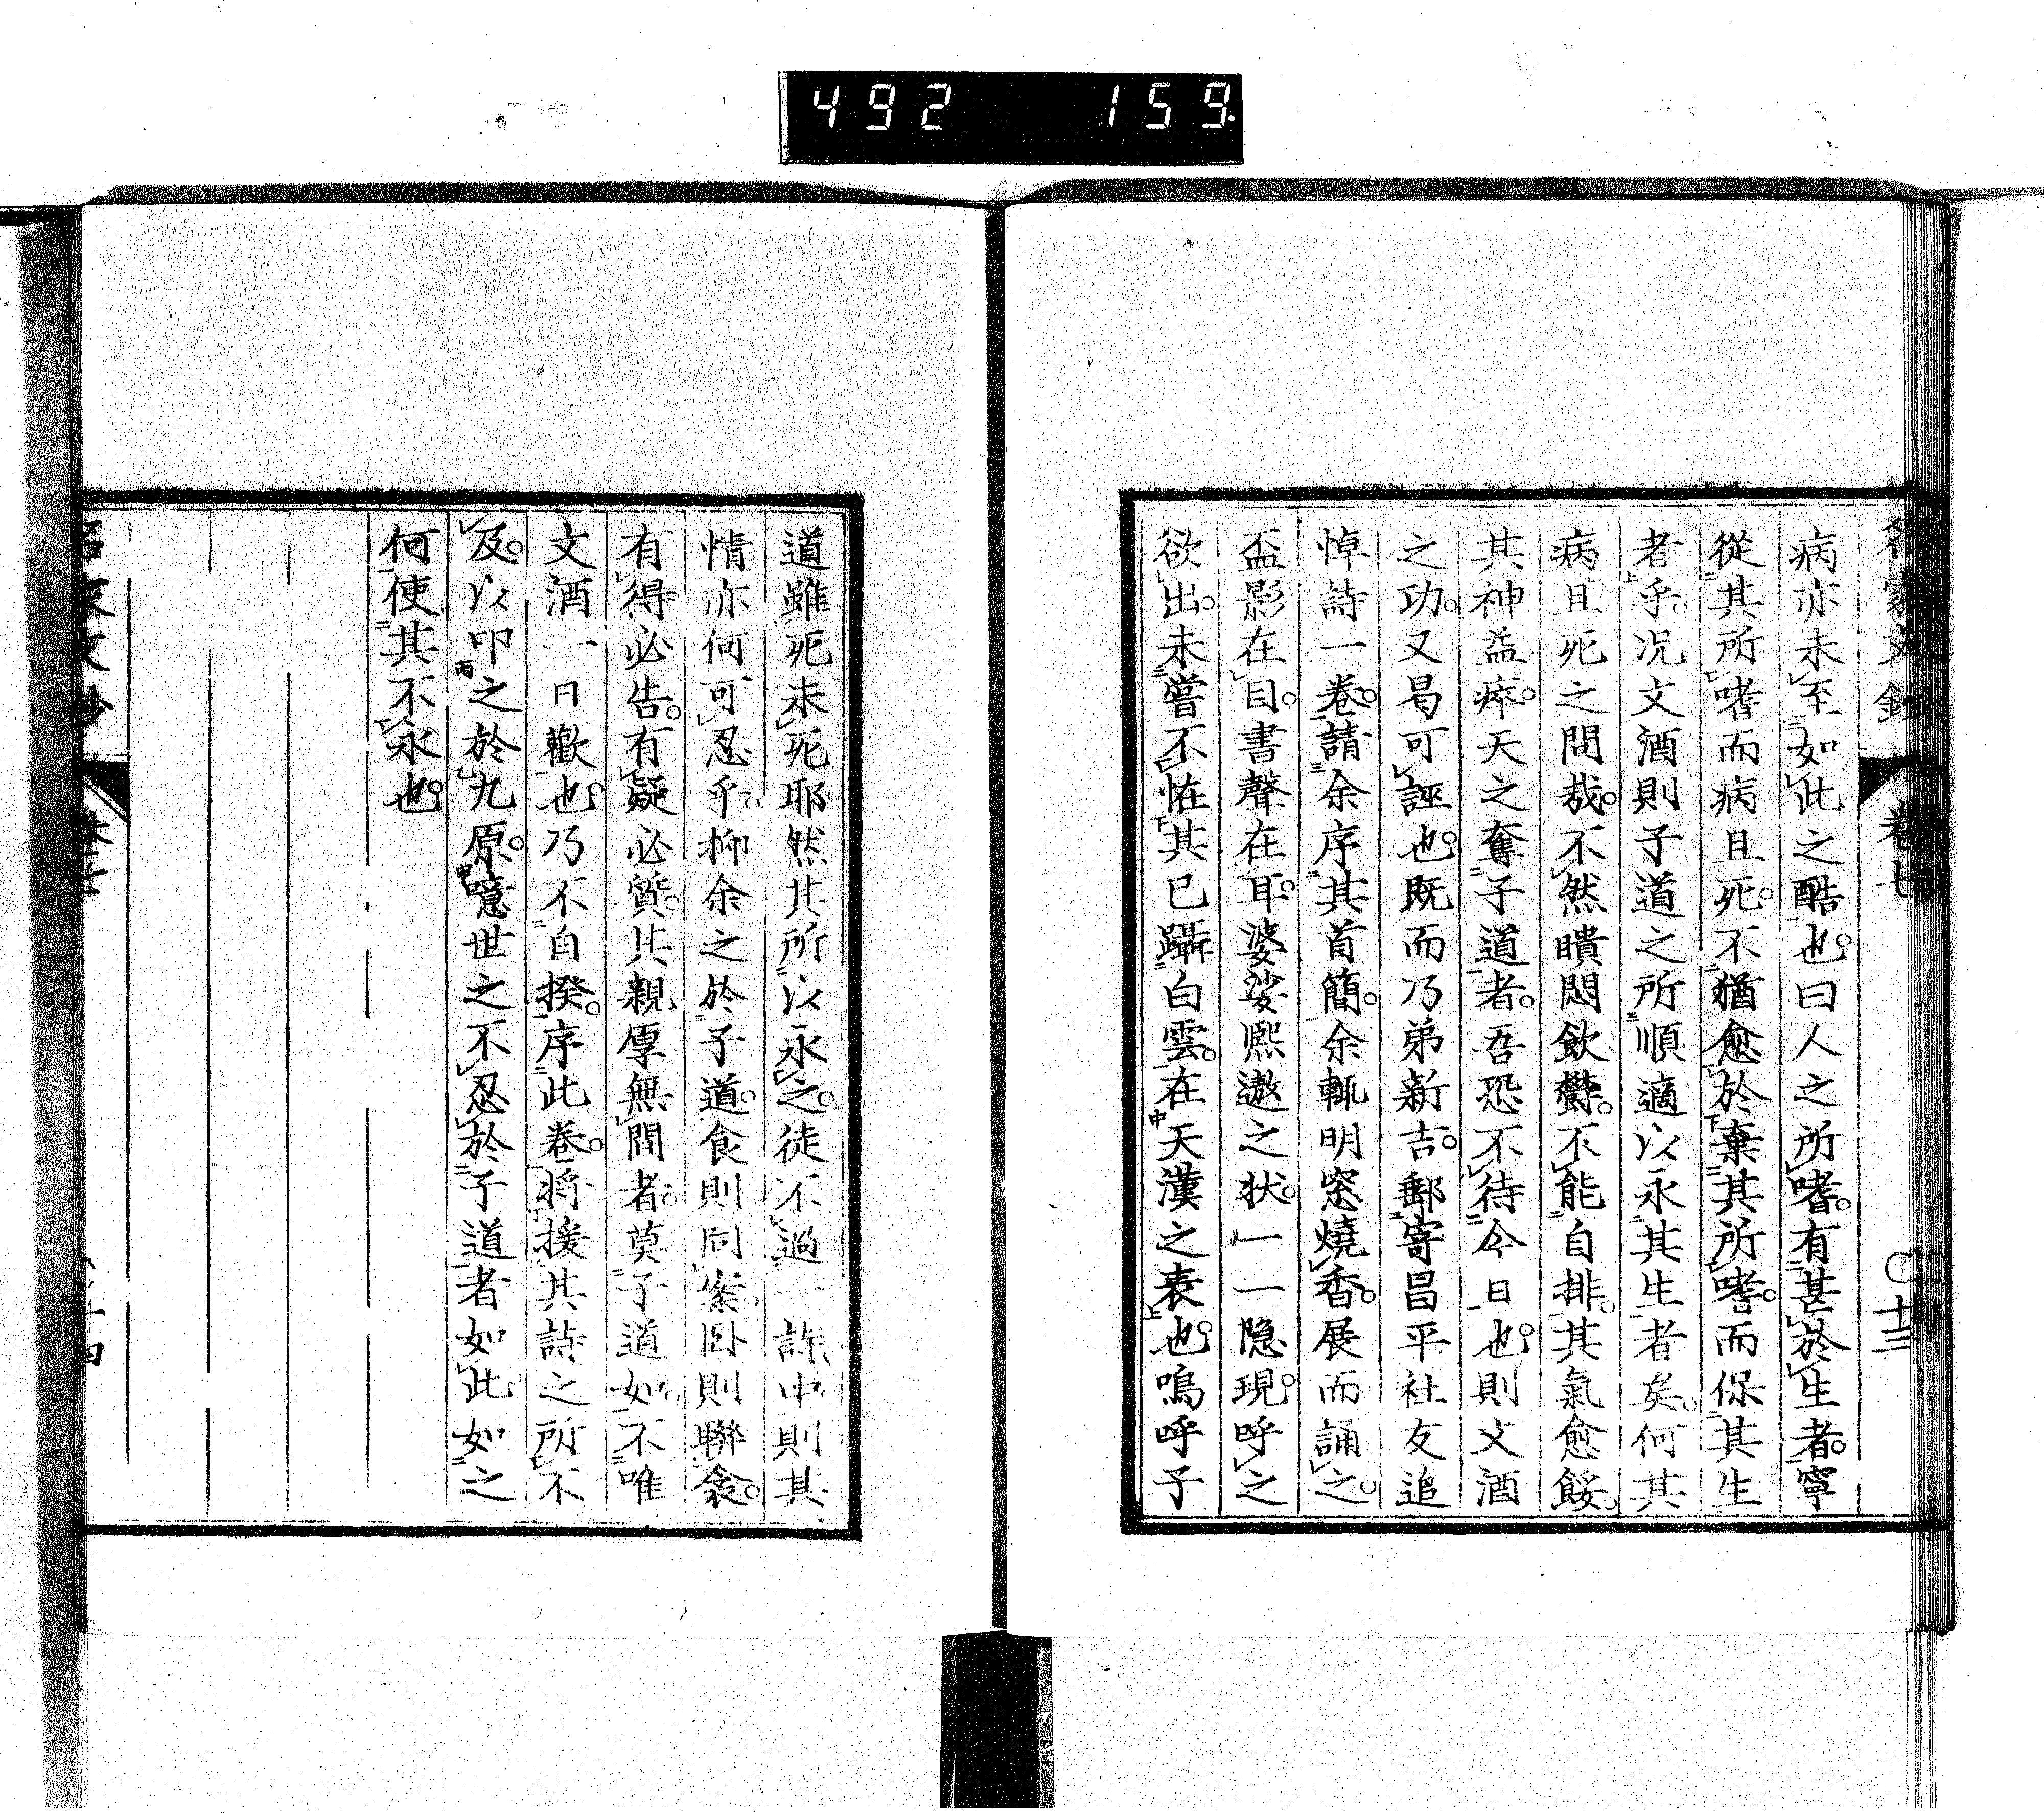 492 159
名家文鈔 卷七 十三
病亦未至如此之酷也曰人之所嗜有甚於生者寧
從其所嗜而病且死不猶愈於棄其所嗜而保其生
者乎况文酒則子道之所順適以永其生者矣何其
病且死之問哉不然瞶悶飲欝不能自排其氣愈餒
其神益瘁天之奪子道者吾恐不待今日也則文酒
之功又曷可誣也既而乃弟新吉郵寄昌平社友追
悼詩一卷請余序其首簡余輒明窓燒香展而誦之
盃影在目書聲在耳婆娑熙遨之状一一隐現呼之
欲出未嘗不怪其已躡白雲在天漢之表也嗚呼子
道雖死未死耶然其所以永之徒不過一許中則其
情亦何可忍乎抑余之於子道食則同案卧則聯衾
有得必告有疑必質其親厚無間者莫子道如不唯
文酒一日歡也乃不自揆序此卷将援其詩之所不
及以叩之於九原噫世之不忍於子道者如此如之
何使其不永也
名家文鈔 卷七 十四